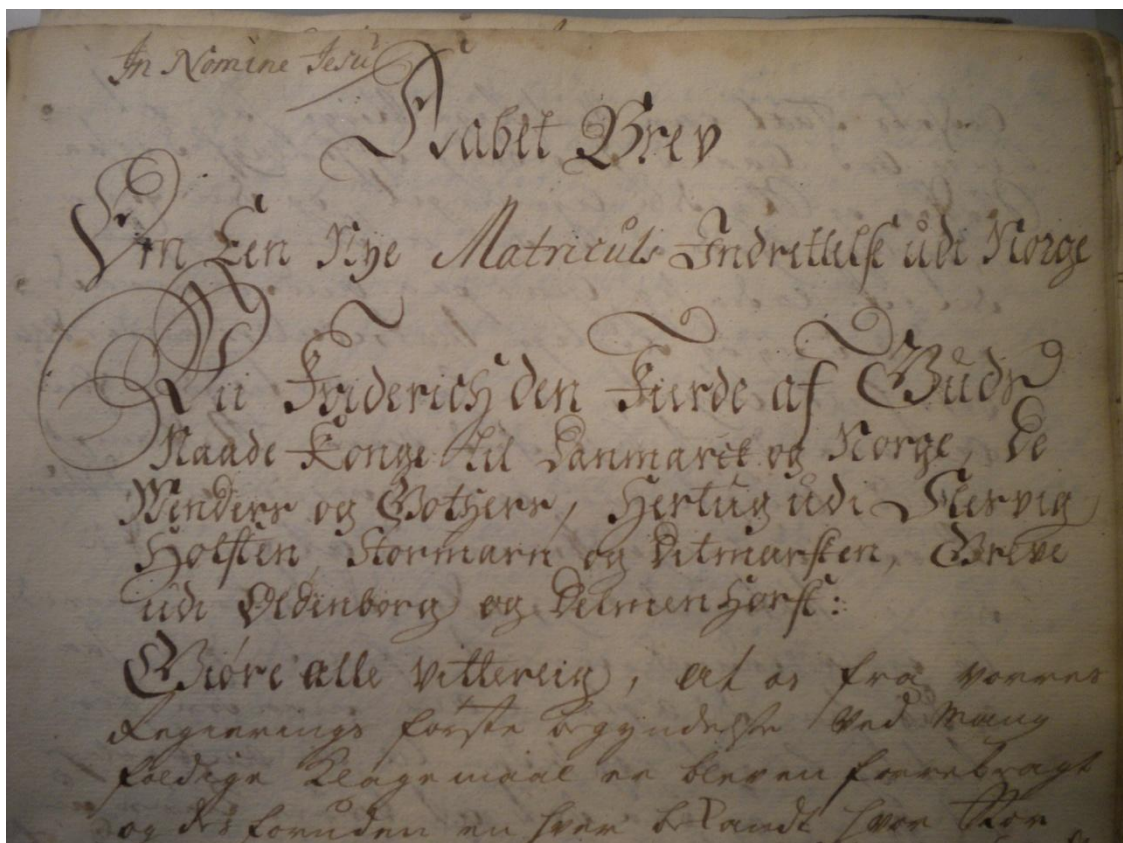 In Nomine Jesu
Aabet Brev
Om Een Nye Matriculs Indrettelse udi Norge
Vii Friderich den Fierde af Guds
Naade Konge til Danmarck og Norge, De
Wenders og Gothers, Hertug udi Slesvig
Holsten, Stormarn og Ditmarsken, Greve
udi Oldenborg og Delmenhorst:
Giøre alle vitterlig, at os fra vorres
Regierings første begyndelse ved mang
foldige Klagemaal er bleven forrebragt
og des foruden en hver bekandt hvor stor